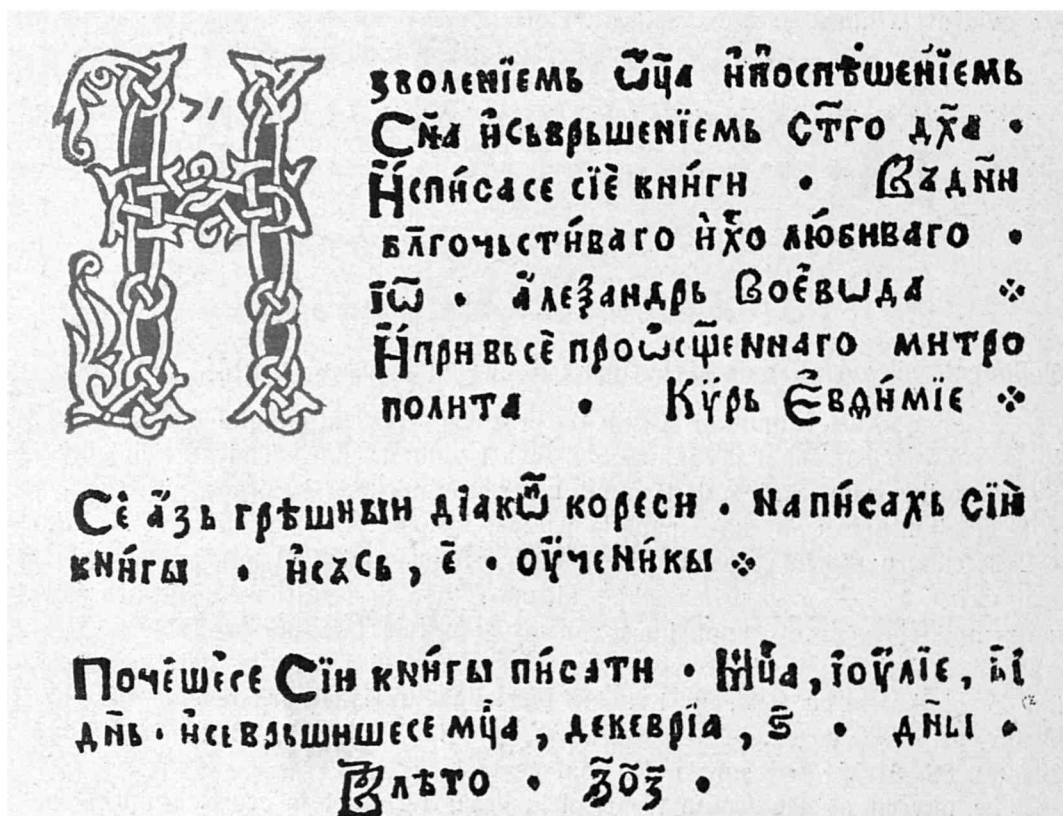 И зволенїемь ѿц҃а и҆поспѣшенїемь
Сн҃а и҆сьврьшенїемь ст҃го дх҃а ·
И҆списасе сїѐ кни́ги · Въ дн҃и
бл҃гочьсти́ваго и҆хо҃ лю́биваго ·
іѡ҃ · а҆леѯандрь воевѡда ⁘
И҆при вьсѐ прѡ҆сщ҃еннаго митро
полита · Кѵ̈рь Є҆вди́мїе ⁘
Сѐ а҆зь грѣшный дїакѡ҃ кореси · написахь сїѝ
кни́гы · и҆съсь, і҃ · оу҆чени́кы ⁘
Поче́шесе Сїи кни́гы пи́сати · Мц҃а, їоу́лїе, в҃і
дн҃ь · и҆севрьшишесе мц҃а, декеврїа, ѕ҃ · дн҃ы ·
Влѣто · з҃о҃ѯ҃ ·